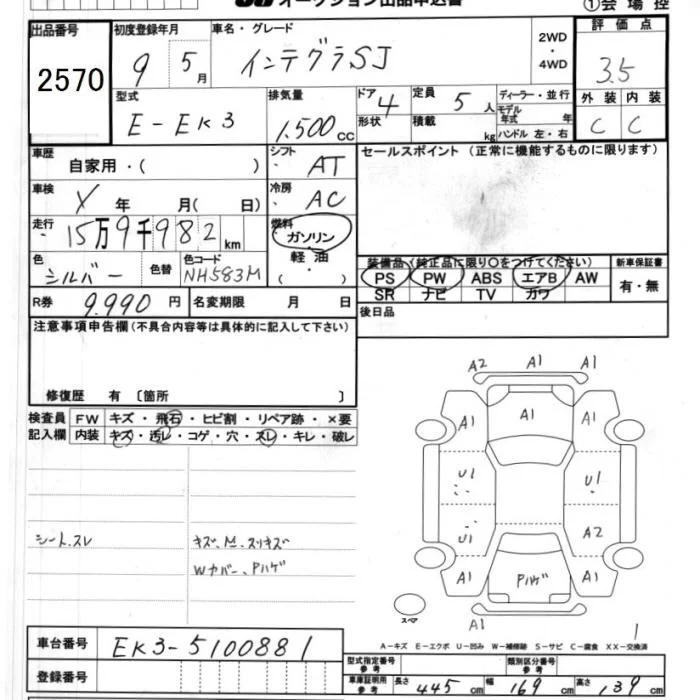 オークション出品申込書 ①会場控
出品番号 初度登録年月 車名・グレード 2WD・4WD 評価点
2570 9年 5月 インテグラSJ 3.5
型式 排気量 ドア 4 定員 5人 ディーラー・並行 外装 内装
E-EK3 1,500cc 形状 積載 kg モデル年式 年 C C
ハンドル 左・右
車歴 自家用・( ) シフト AT セールスポイント (正常に機能するものに限ります)
車検 X 年 月( 日) 冷房 AC
走行 15万9千982km 燃料 ガソリン
軽油
( ・ )
色 シルバー 色替 色コード NH583M
装備品 (純正品に限り〇をつけてください) 新車保証書
PS PW ABS エアB AW 有・無
SR ナビ TV カワ
R券 9.990 円 名変期限 月 日 後日品
注意事項申告欄(不具合内容等は具体的に記入して下さい)
修復歴 有 〔箇所 〕
検査員 FW キズ・飛石・ヒビ割・リペア跡・×要
記入欄 内装 キズ・汚レ・コゲ・穴・スレ・キレ・破レ
シート.スレ キズ、M、スリキズ
Wカバー、Pハゲ
A2 A1 A1
A1 A1 A1
U1 U1
U1 A2
A1 Pハゲ A1
スマ
1
A-キズ E-エクボ U-凹み W-補修跡 S-サビ C-腐食 XX-交換済
車台番号 EK3-5100881
型式指定番号 参考 類別区分番号 参考
登録番号 車庫証明用 参考 長さ 445cm 幅 169cm 高さ 139cm